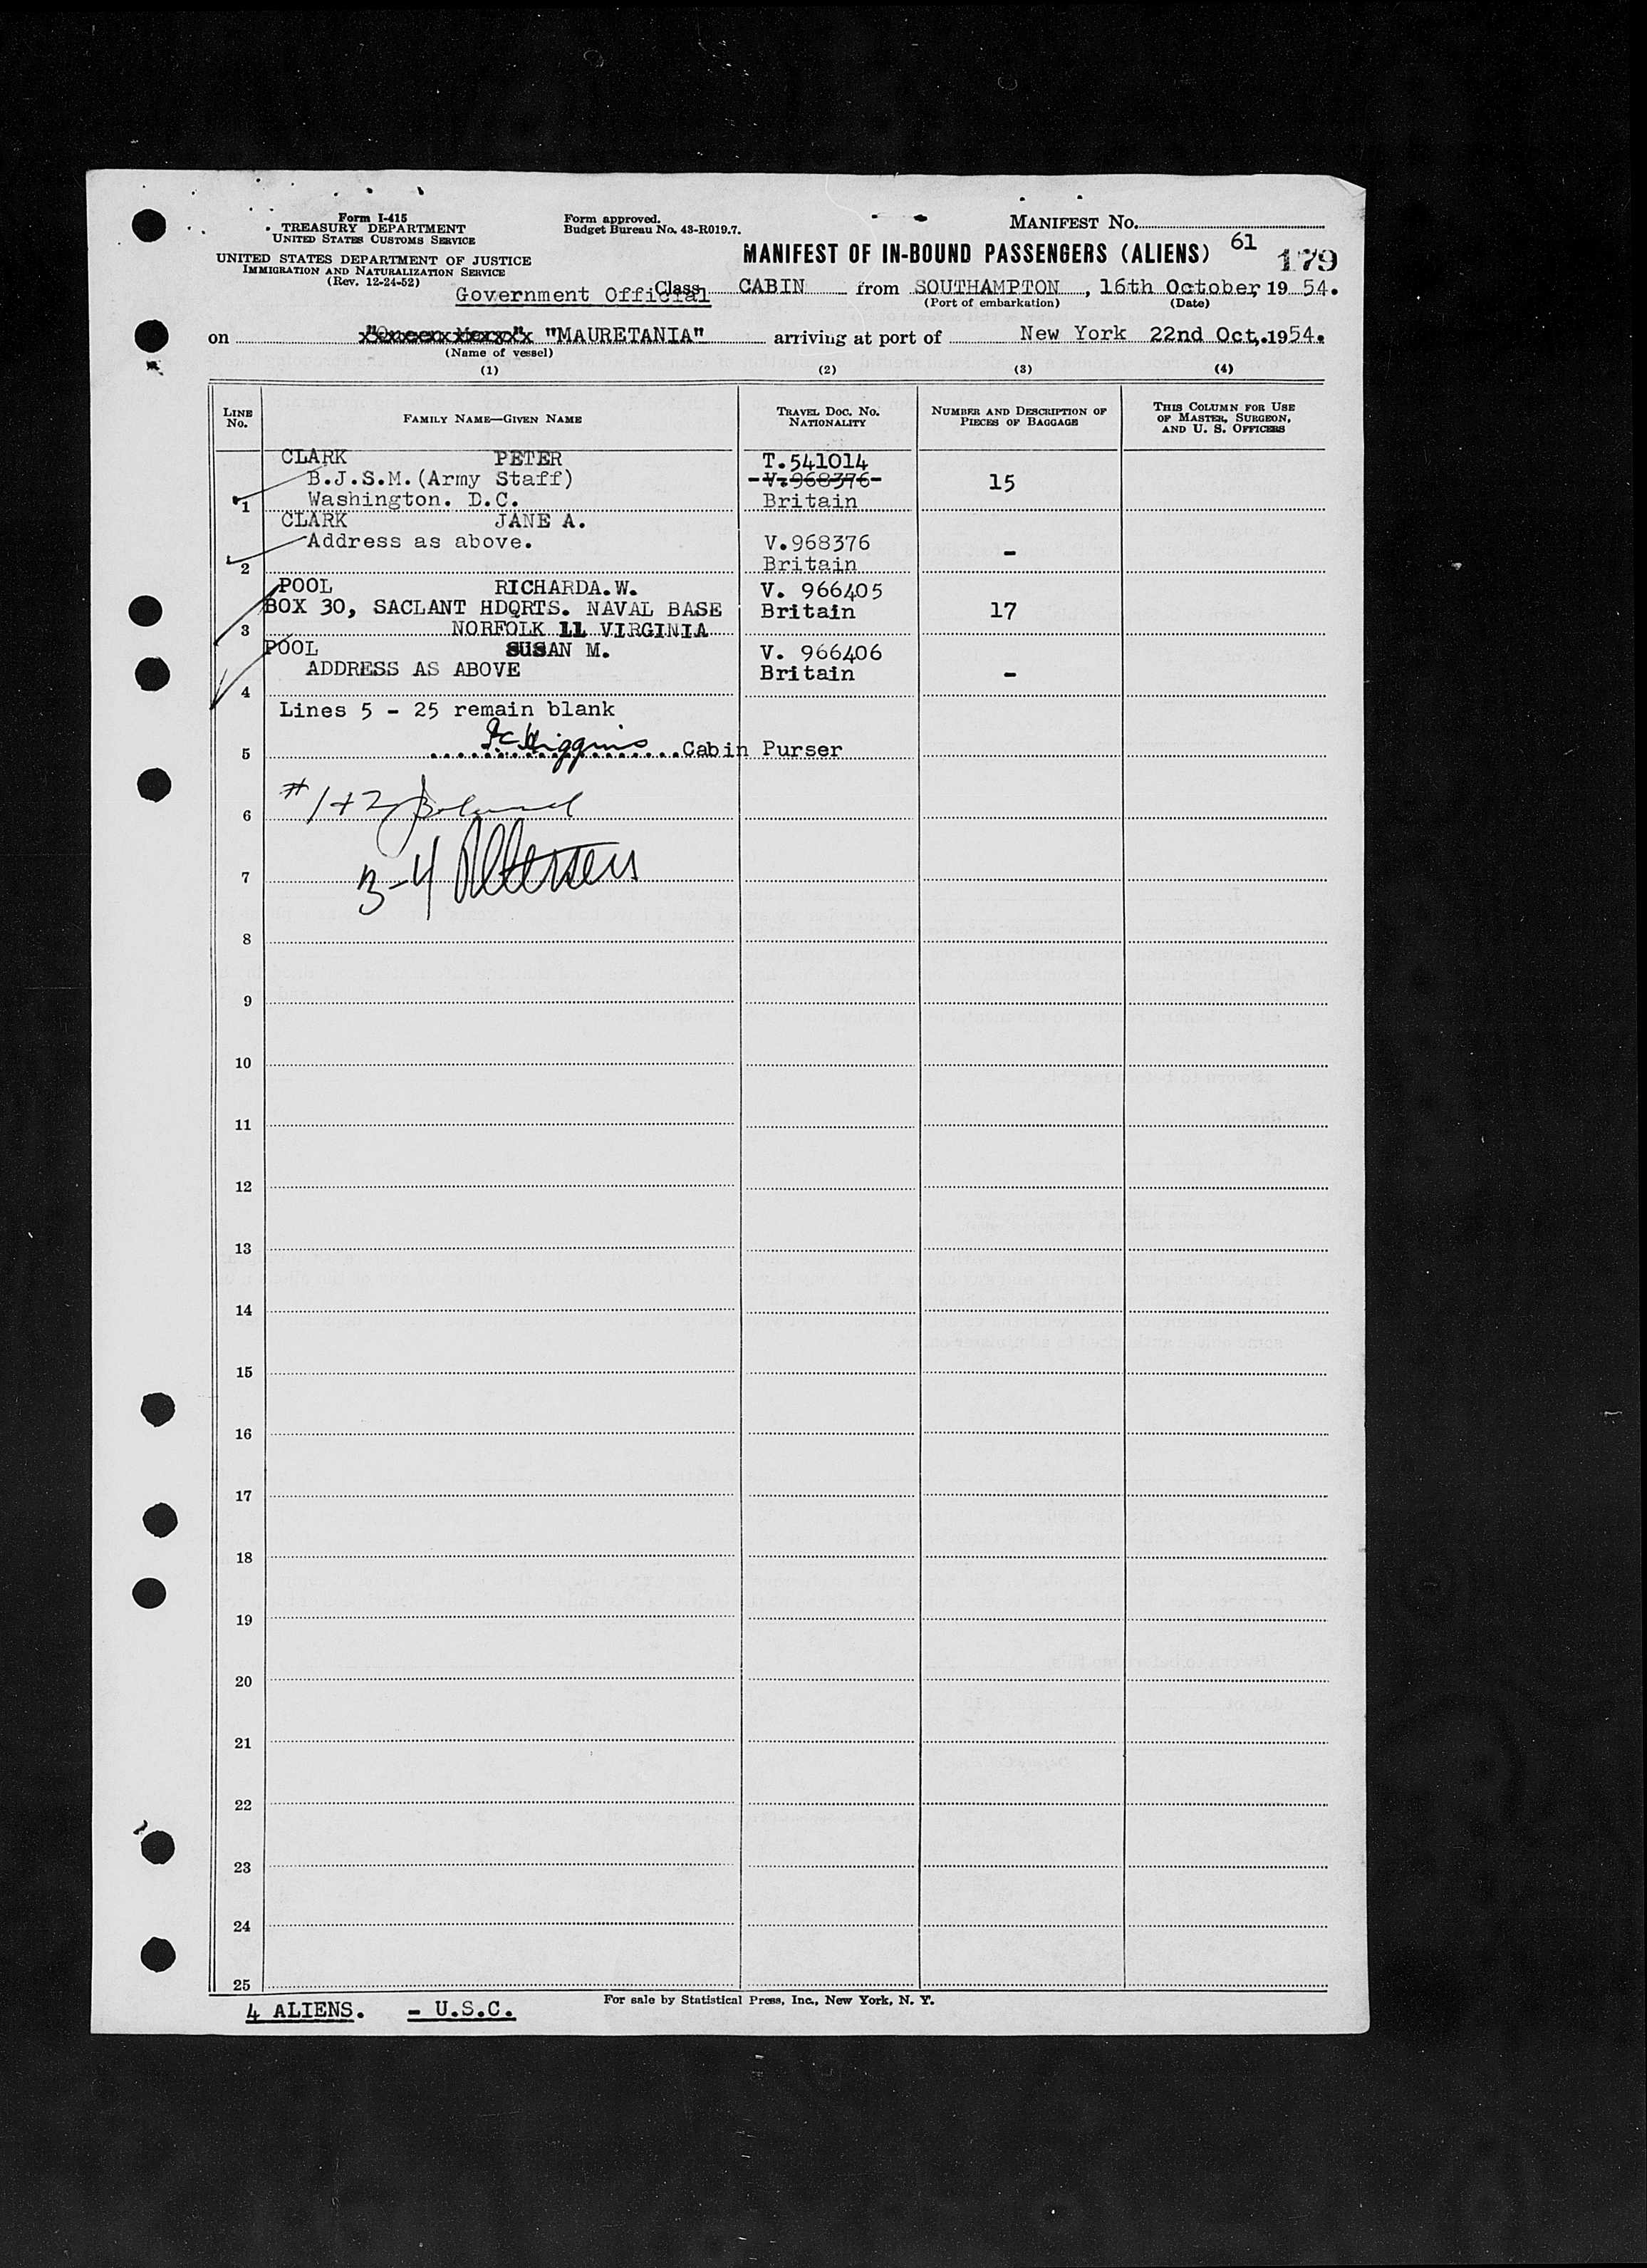 Form I-415
TREASURY DEPARTMENT
UNITED STATES CUSTOMS SERVICE
UNITED STATES DEPARTMENT OF JUSTICE
IMMIGRATION AND NATURALIZATION SERVICE
(Rev. 12-24-52)
Form approved.
Budget Bureau No. 43-R019.7.
MANIFEST No.
MANIFEST OF IN-BOUND PASSENGERS (ALIENS) 61 179
Government Official Class CABIN from SOUTHAMPTON, 16th October, 1954.
(Port of embarkation) (Date)
on "Queen Mary" "MAURETANIA" arriving at port of New York 22nd Oct,.1954.
(Name of vessel)
(1) (2) (3) (4)
LINE No. FAMILY NAME—GIVEN NAME TRAVEL DOC. NO. NATIONALITY NUMBER AND DESCRIPTION OF PIECES OF BAGGAGE THIS COLUMN FOR USE OF MASTER, SURGEON, AND U. S. OFFICERS
CLARK PETER T.541014
B.J.S.M.(Army Staff) -V.968376- 15
1 Washington. D.C. Britain
CLARK JANE A.
Address as above. V.968376 -
2 Britain
POOL RICHARDA.W. V. 966405
BOX 30, SACLANT HDQRTS. NAVAL BASE Britain 17
3 NORFOLK 11 VIRGINIA
POOL SUSAN M. V. 966406
ADDRESS AS ABOVE Britain -
4
Lines 5 - 25 remain blank
5 Higgins Cabin Purser
#1+2
6
3-4
7
8
9
10
11
12
13
14
15
16
17
18
19
20
21
22
23
24
25
4 ALIENS. - U.S.C. For sale by Statistical Press, Inc., New York, N. Y.